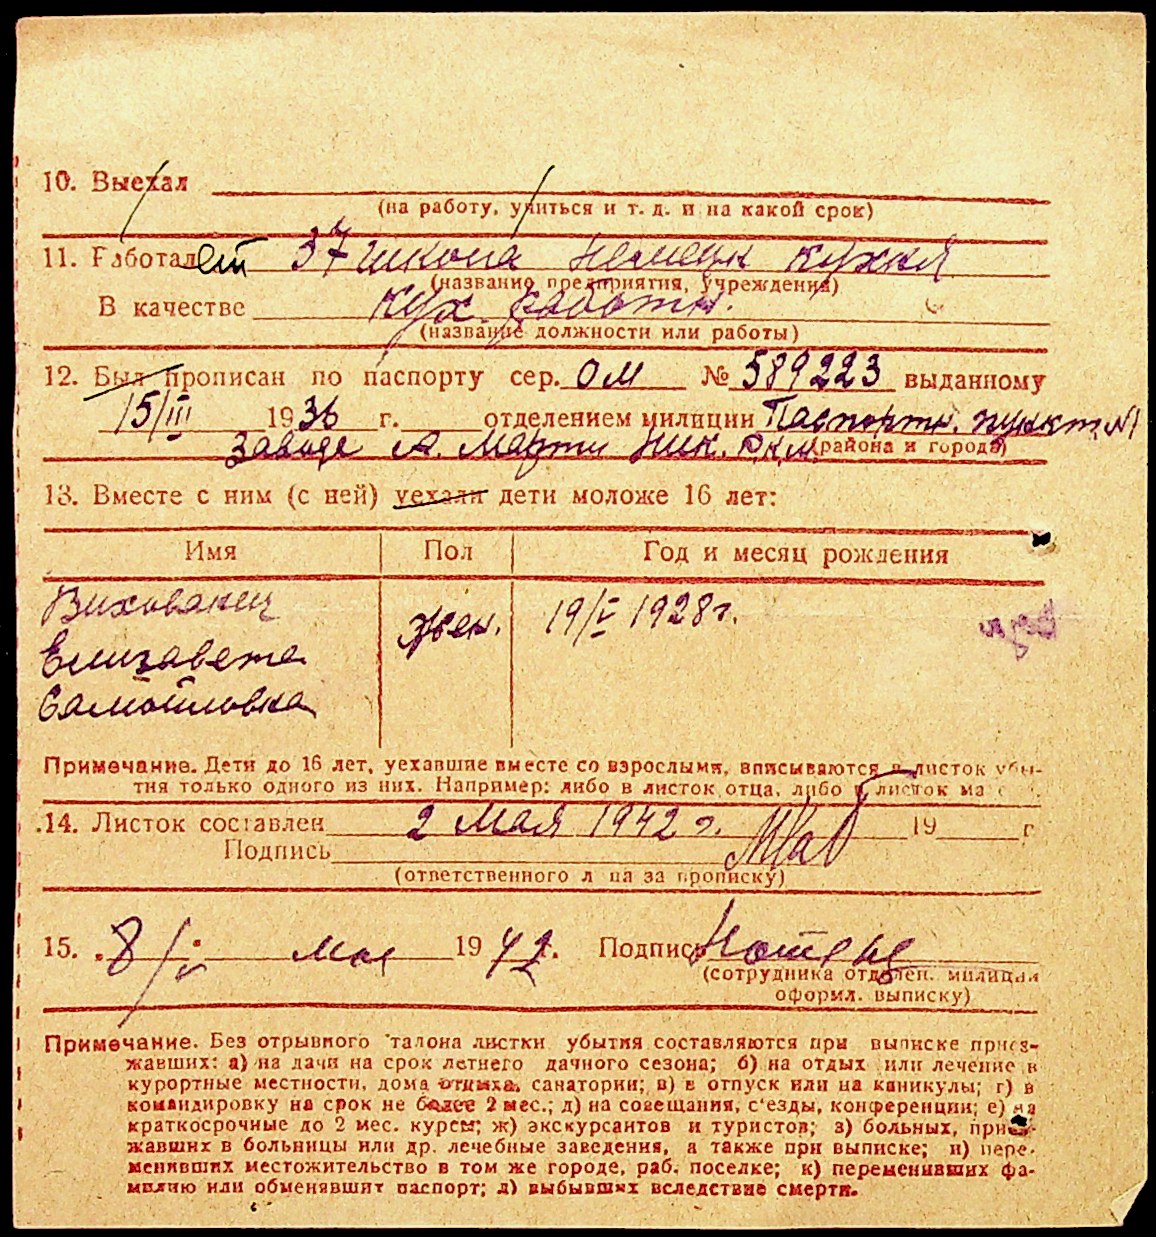 10. Выехал
(на работу, учиться и т. д. и на какой срок)
11. Работал ет 37 школа немецк кухня
(название предприятия, учреждения)
В качестве кух. работн.
(название должности или работы)
12. Был прописан по паспорту сер. ОМ № 589223 выданному
15/III 1936 г. отделением милиции Паспортн. пункт №1
завода А. Марти Ник. р.к.м. (района и города)
13. Вместе с ним (с ней) уехали дети моложе 16 лет:
Имя Пол Год и месяц рождения
Вихованец
Елизавета жен. 19/V 1928 г.
Самойловна
Примечание. Дети до 16 лет, уехавшие вместе со взрослыми, вписываются в листок убы-
тия только одного из них. Например: либо в листок отца, либо в листок ма
14. Листок составлен 2 мая 1942 г. 19 г
Подпись
(ответственного л ца за прописку)
15. 8/V мая 1942 г. Подпись
(сотрудника отделен. милиции
оформл. выписку)
Примечание. Без отрывного талона листки убытия составляются при выписке приез-
жавших: а) на дачи на срок летнего дачного сезона; б) на отдых или лечение в
курортные местности, дома отдыха, санатории; в) в отпуск или на каникулы; г) в
командировку на срок не более 2 мес.; д) на совещания, с'езды, конференции; е) на
краткосрочные до 2 мес. курсы; ж) экскурсантов и туристов; з) больных, приез-
жавших в больницы или др. лечебные заведения, а также при выписке; и) пере-
менивших местожительство в том же городе, раб. поселке; к) переменивших фа-
милию или обменявших паспорт; л) выбывших вследствие смерти.